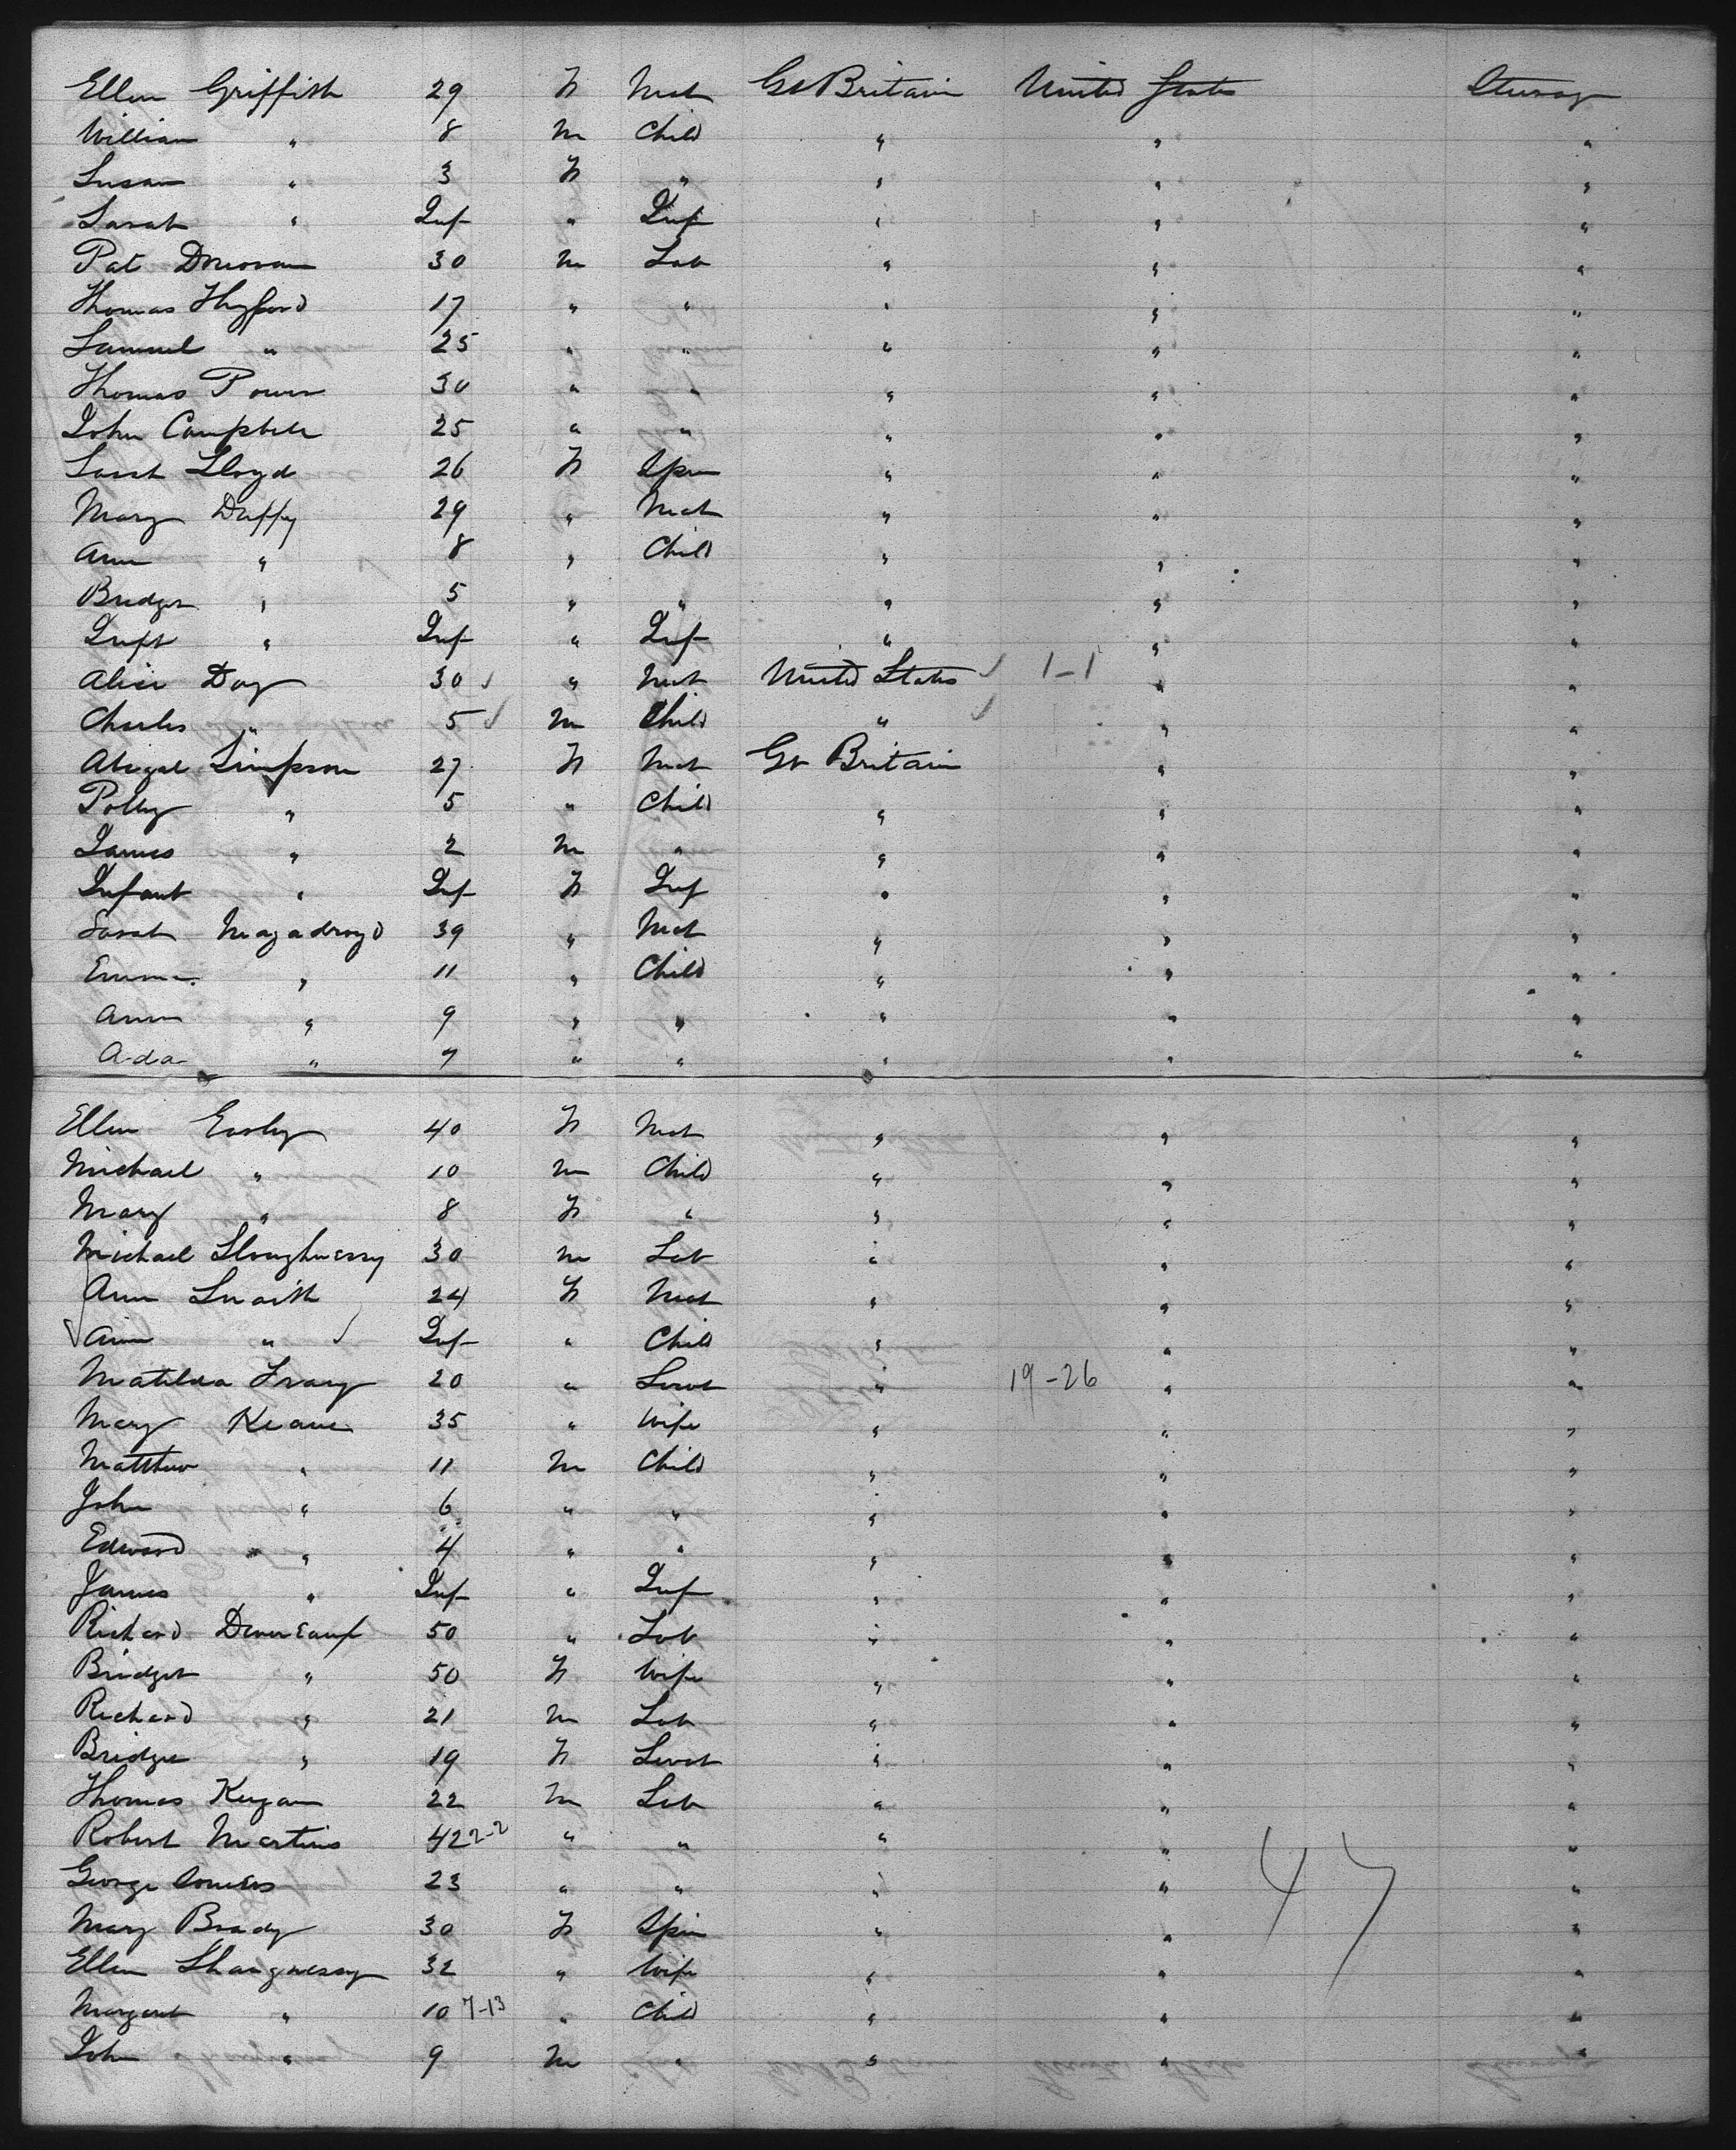 Ellen Griffith 29 F Mat Gt Britain United States Steerage
William " 8 M Child " " "
Susan " 3 F " " " "
Sarah " Inf " Inf " " "
Pat Donovan 30 M Lab " " "
Thomas 17 " " " " "
Samuel " 25 " " " " "
Thomas Power 30 " " " " "
John Campbell 25 " " " " "
Sarah Lloyd 26 F Spin " " "
Mary Duffy 29 " Mat " " "
Ann " 8 " Child " " "
Bridget " 5 " " " " "
Inft " Inf " Inf " " "
Alice Day 30 " Mat United States 1-1 " "
Charles " 5 M Child " " "
Abigal Simpson 27 F Mat Gt Britain " "
Polly " 5 " Child " " "
James " 2 M " " " "
Infant " Inf F Inf " " "
Sarah Magadroyd 39 " Mat " " "
Emma " 11 " Child " " "
Ann " 9 " " " " "
Ada " 7 " " " " "
Ellen 40 F Mat " " "
Michael " 10 M Child " " "
Mary " 8 F " " " "
Michael 30 M Lab " " "
Ann Snaith 24 F Mat " " "
Ann " Inf " Child " " "
Matilda 20 " Servt " 19-26 " "
Mary Keane 35 " Wife " " "
Matthew " 11 M Child " " "
John " 6 " " " " "
Edward " 4 " " " " "
James " Inf " Inf " " "
Richard Devereaux 50 " Lab " " "
Bridget " 50 F Wife " " "
Richard " 21 M Lab " " "
Bridget " 19 F Servt " " "
Thomas Keegan 22 M Lab " " "
Robert Martins 42 2-2 " " " " "
George 23 " " " " "
Mary Brady 30 F Spin " " "
Ellen Shaugnessy 32 " Wife " " "
Margaret " 10 7-13 " Child " " "
John " 9 M " " " "
47